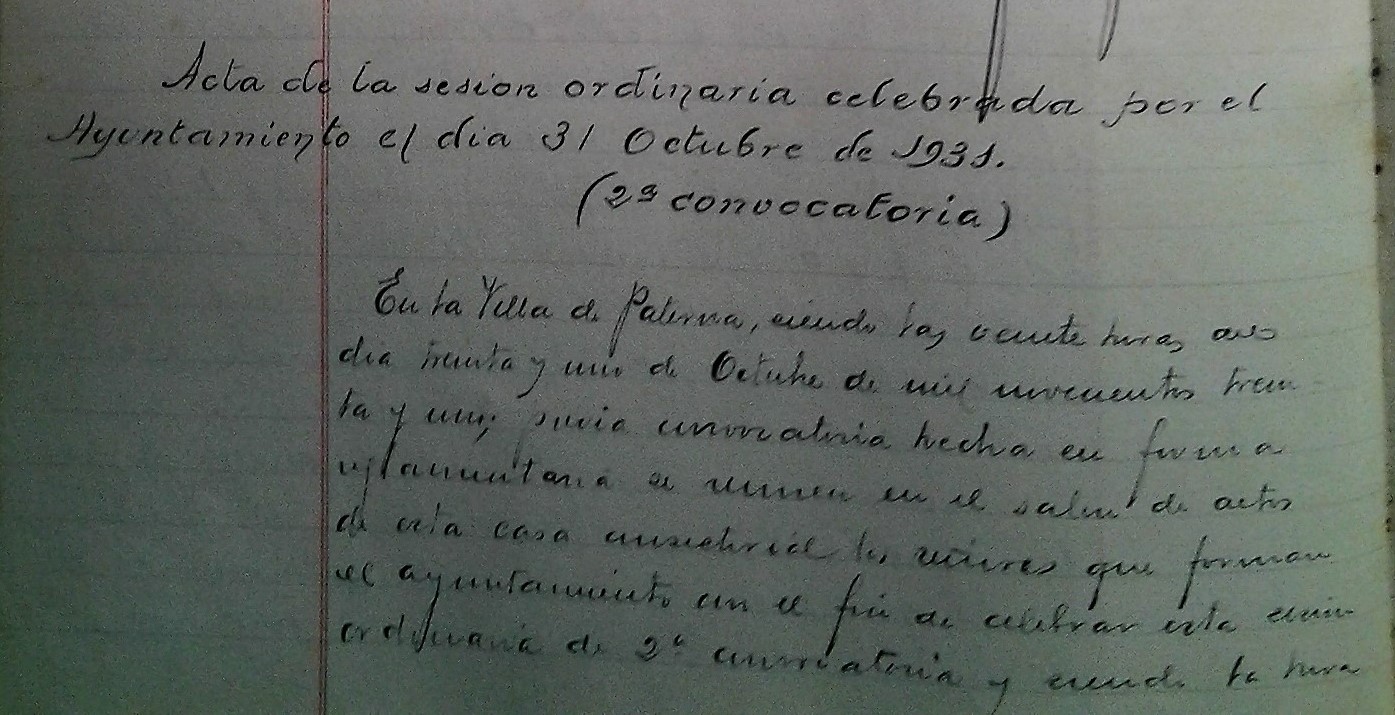 Acta de la sesion ordinaria celebrada por el
Ayuntamiento el dia 31 Octubre de 1931.
(2ª convocatoria)
En la Villa de Paterna, siendo las veinte horas
dia treinta y uno de Octubre de mil novecientos trein-
ta y uno; previa convocatoria hecha en forma
reglamentaria se reunen en el salon de actos
de esta casa consistorial los señores que forman
el ayuntamiento con el fin de celebrar esta sesion
ordinaria de 2ª convocatoria y siendo la hora